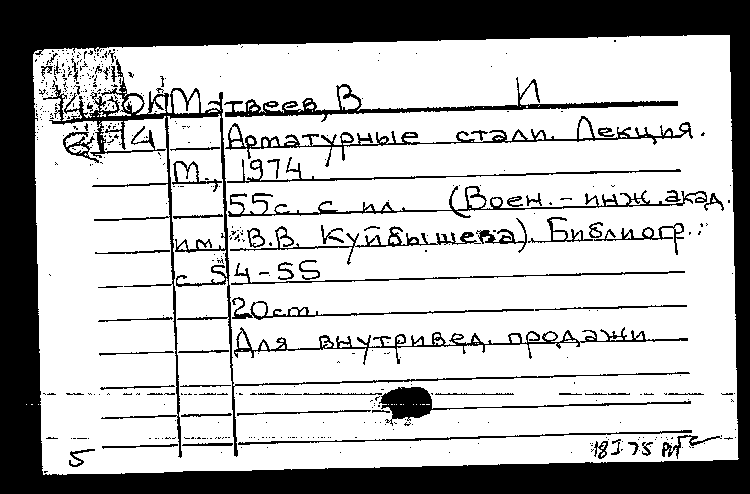 Матвеев, В И
Арматурные стали. Лекция.
М., 1974.
55с. с ил. (Воен.-инж. акад.
им. В.В. Куйбышева). Библиогр.:
с 54-55
20ст.
Для внутривед. продажи
5 18 I 75